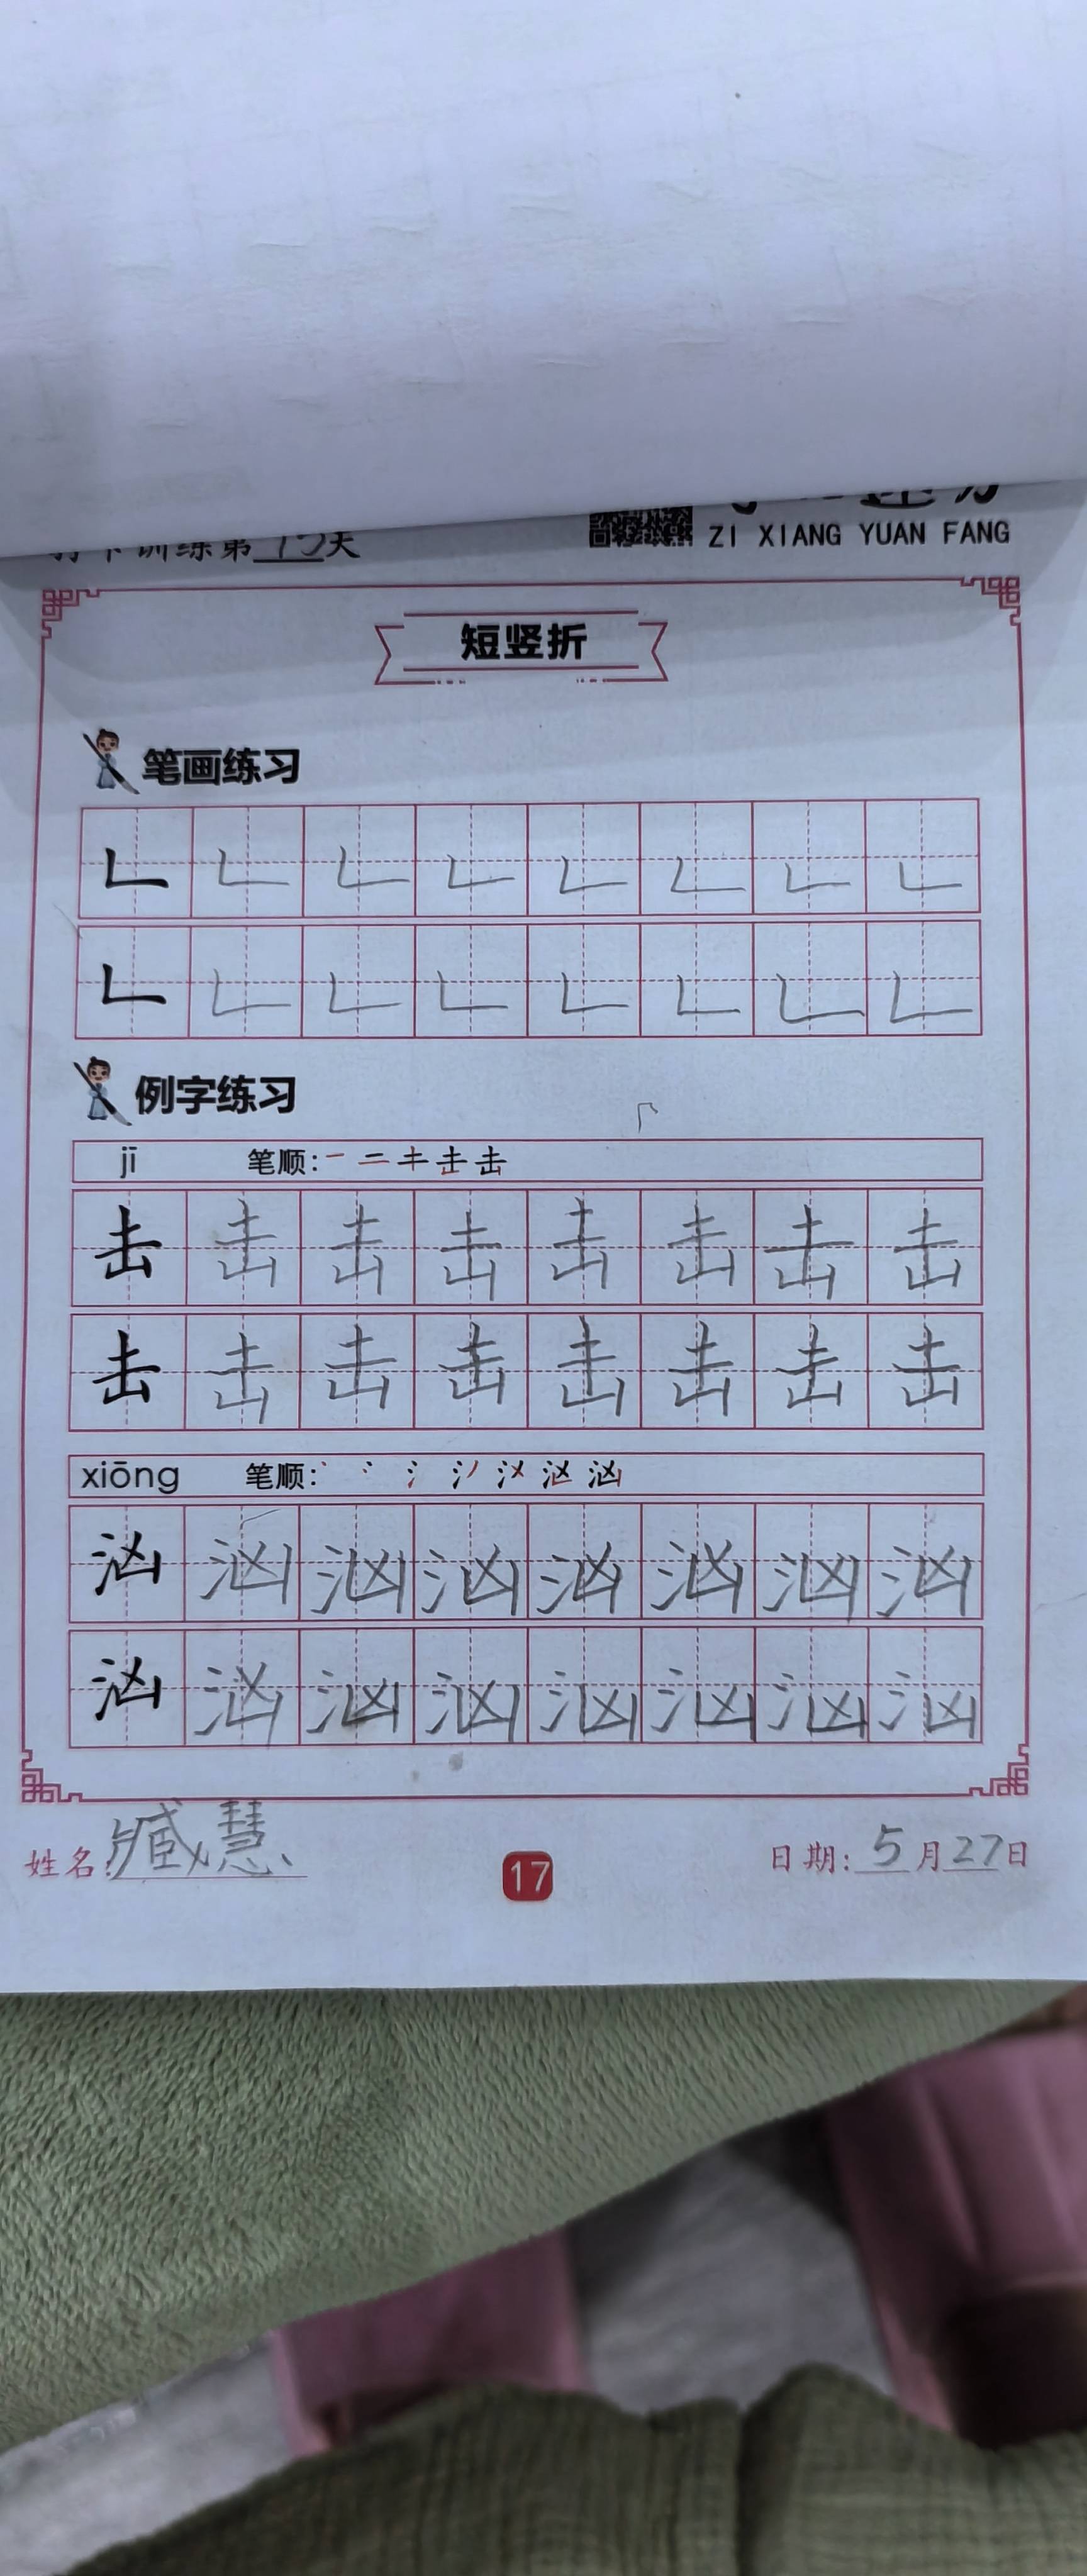 打卡训练第15天
ZI XIANG YUAN FANG
短竖折
笔画练习
例字练习
jī 笔顺:
击 击 击 击 击 击 击 击
击 击 击 击 击 击 击 击
xiōng 笔顺:
汹 汹 汹 汹 汹 汹 汹 汹
汹 汹 汹 汹 汹 汹 汹 汹
姓名:臧慧
17
日期:5月27日